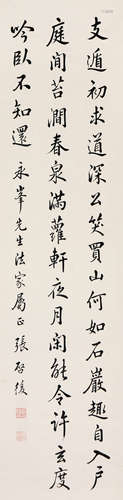 支遁初求道深公笑買山何如石巖趣自入戶
庭間苔澗春泉滿蘿軒夜月閑能令許玄度
吟臥不知還 永峯先生法家屬正 張啓後